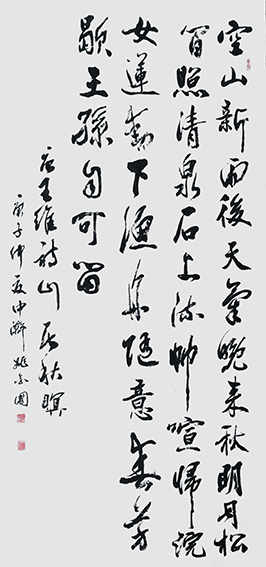 空山新雨後天氣晚來秋明月松
間照清泉石上流竹喧歸浣
女蓮動下漁舟隨意春芳
歇王孫自可留
唐王維詩山居秋暝
庚子仲夏中澣姚